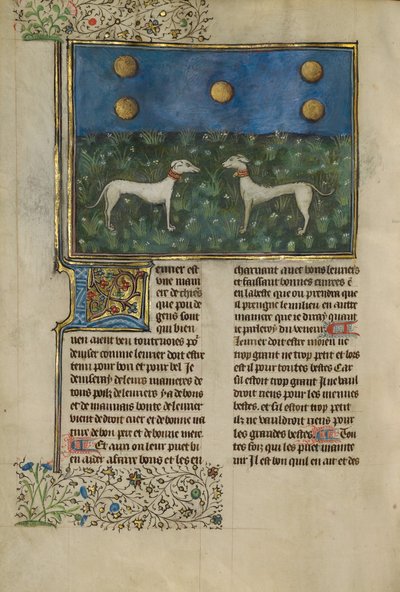 Leurier est
vne mani
ere de chiēs
que pou de
gens sont
qui bien
nen aient veu toutteuoies po
deuiser comme leurier doit estre
tenu pour bon et pour bel Je
deuiseray de leurs manieres de
tous poilz de leuriers ya de bons
et de mauuais bonte de leurier
vient de droit cuer et de bonne na
ture de bon pere et de bonne mere
Et aussi on leur puet bi
en aidier a faire bons et les en
charruant auec bons leuriers
et faisant bonnes cuirees
en la beste que on prendra que
il preigne le milieu en autre
maniere que ie diray quant
ie parleray du veneur
leurier doit estre moien ne
trop grant ne trop petit et lors
est il pour toutes bestes Car
sil estoit trop grant il ne vaul
droit riens pour les menues
bestes et sil estoit trop petit
il ne vauldroit riens pour
les grandes bestes Tou
tes foiz qui les puet mainte
nir Il est bon quil en ait et des